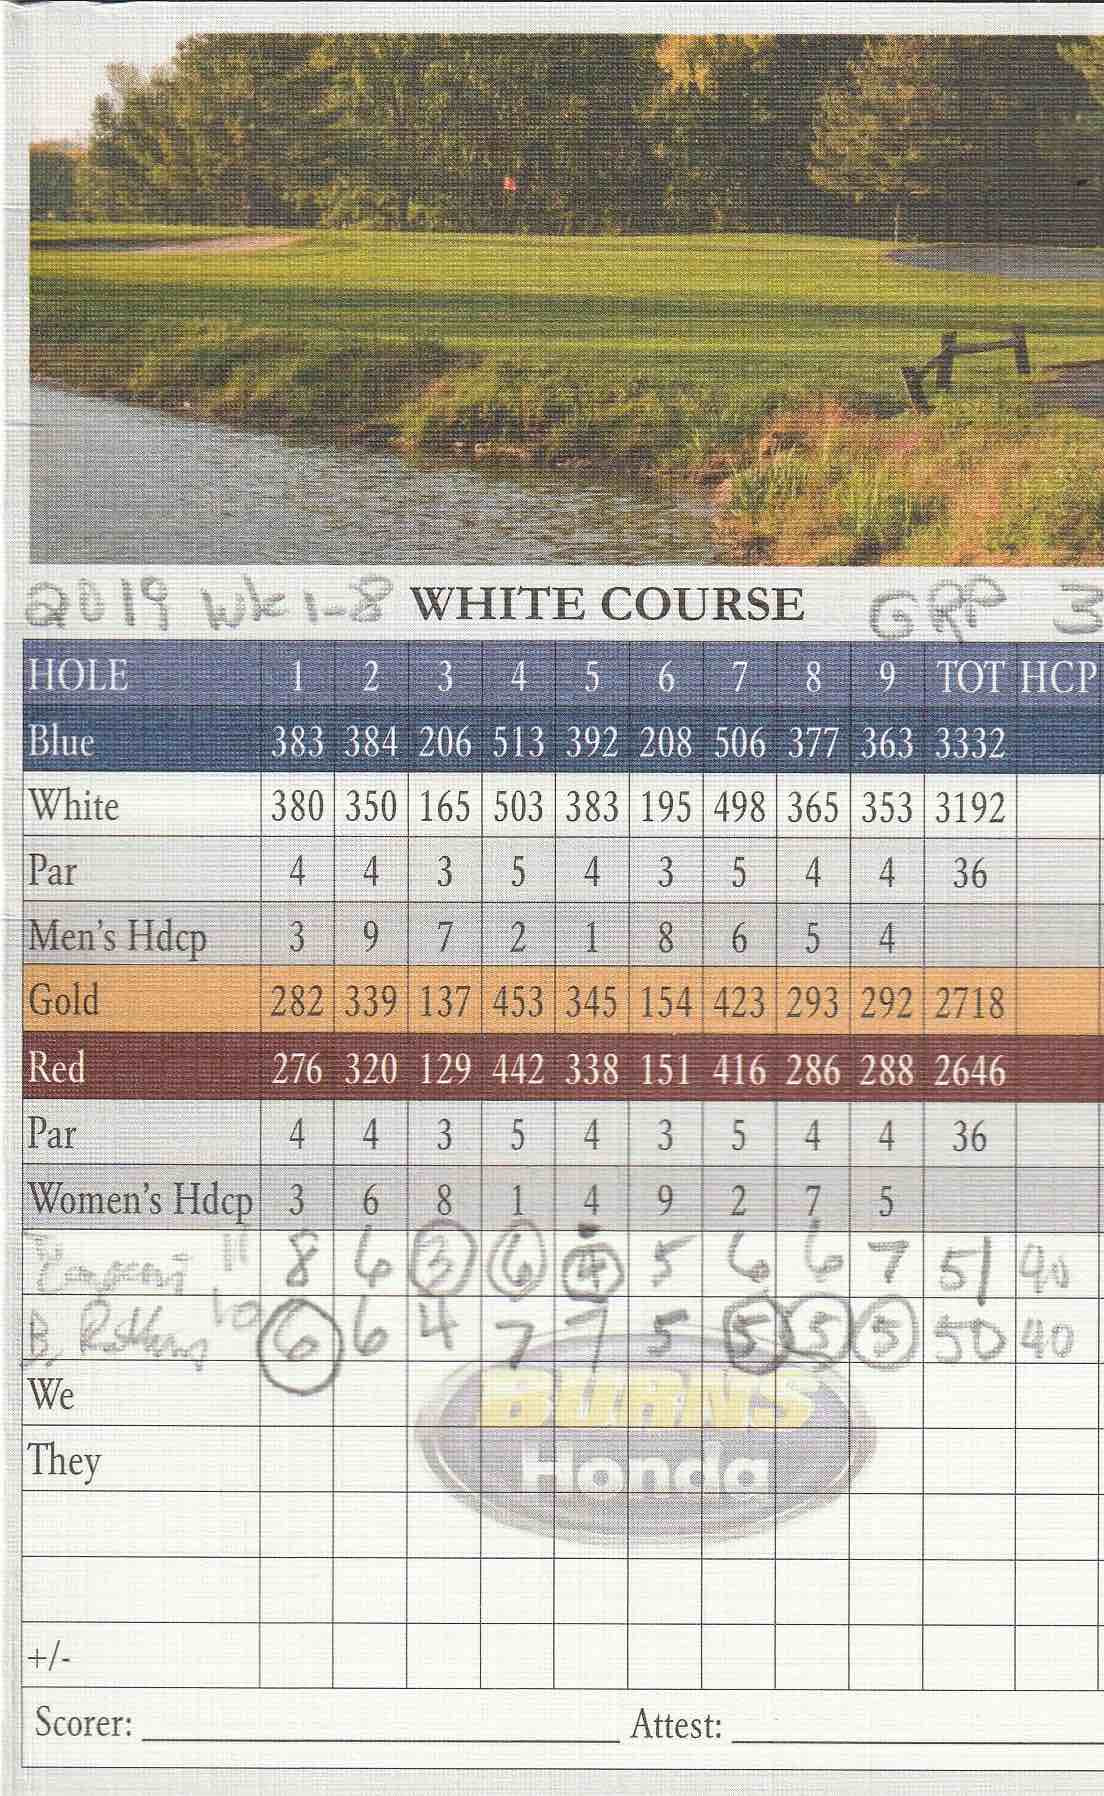 2019 WK 1-8 WHITE COURSE GRP 3
HOLE 1 2 3 4 5 6 7 8 9 TOT HCP
Blue 383 384 206 513 392 208 506 377 363 3332
White 380 350 165 503 383 195 498 365 353 3192
Par 4 4 3 5 4 3 5 4 4 36
Men's Hdcp 3 9 7 2 1 8 6 5 4
Gold 282 339 137 453 345 154 423 293 292 2718
Red 276 320 129 442 338 151 416 286 288 2646
Par 4 4 3 5 4 3 5 4 4 36
Women's Hdcp 3 6 8 1 4 9 2 7 5
11 8 6 3 6 4 5 6 6 7 51 40
B. 10 6 6 4 7 7 5 5 5 5 50 40
We
BURNS
They
Honda
+/-
Scorer: Attest: